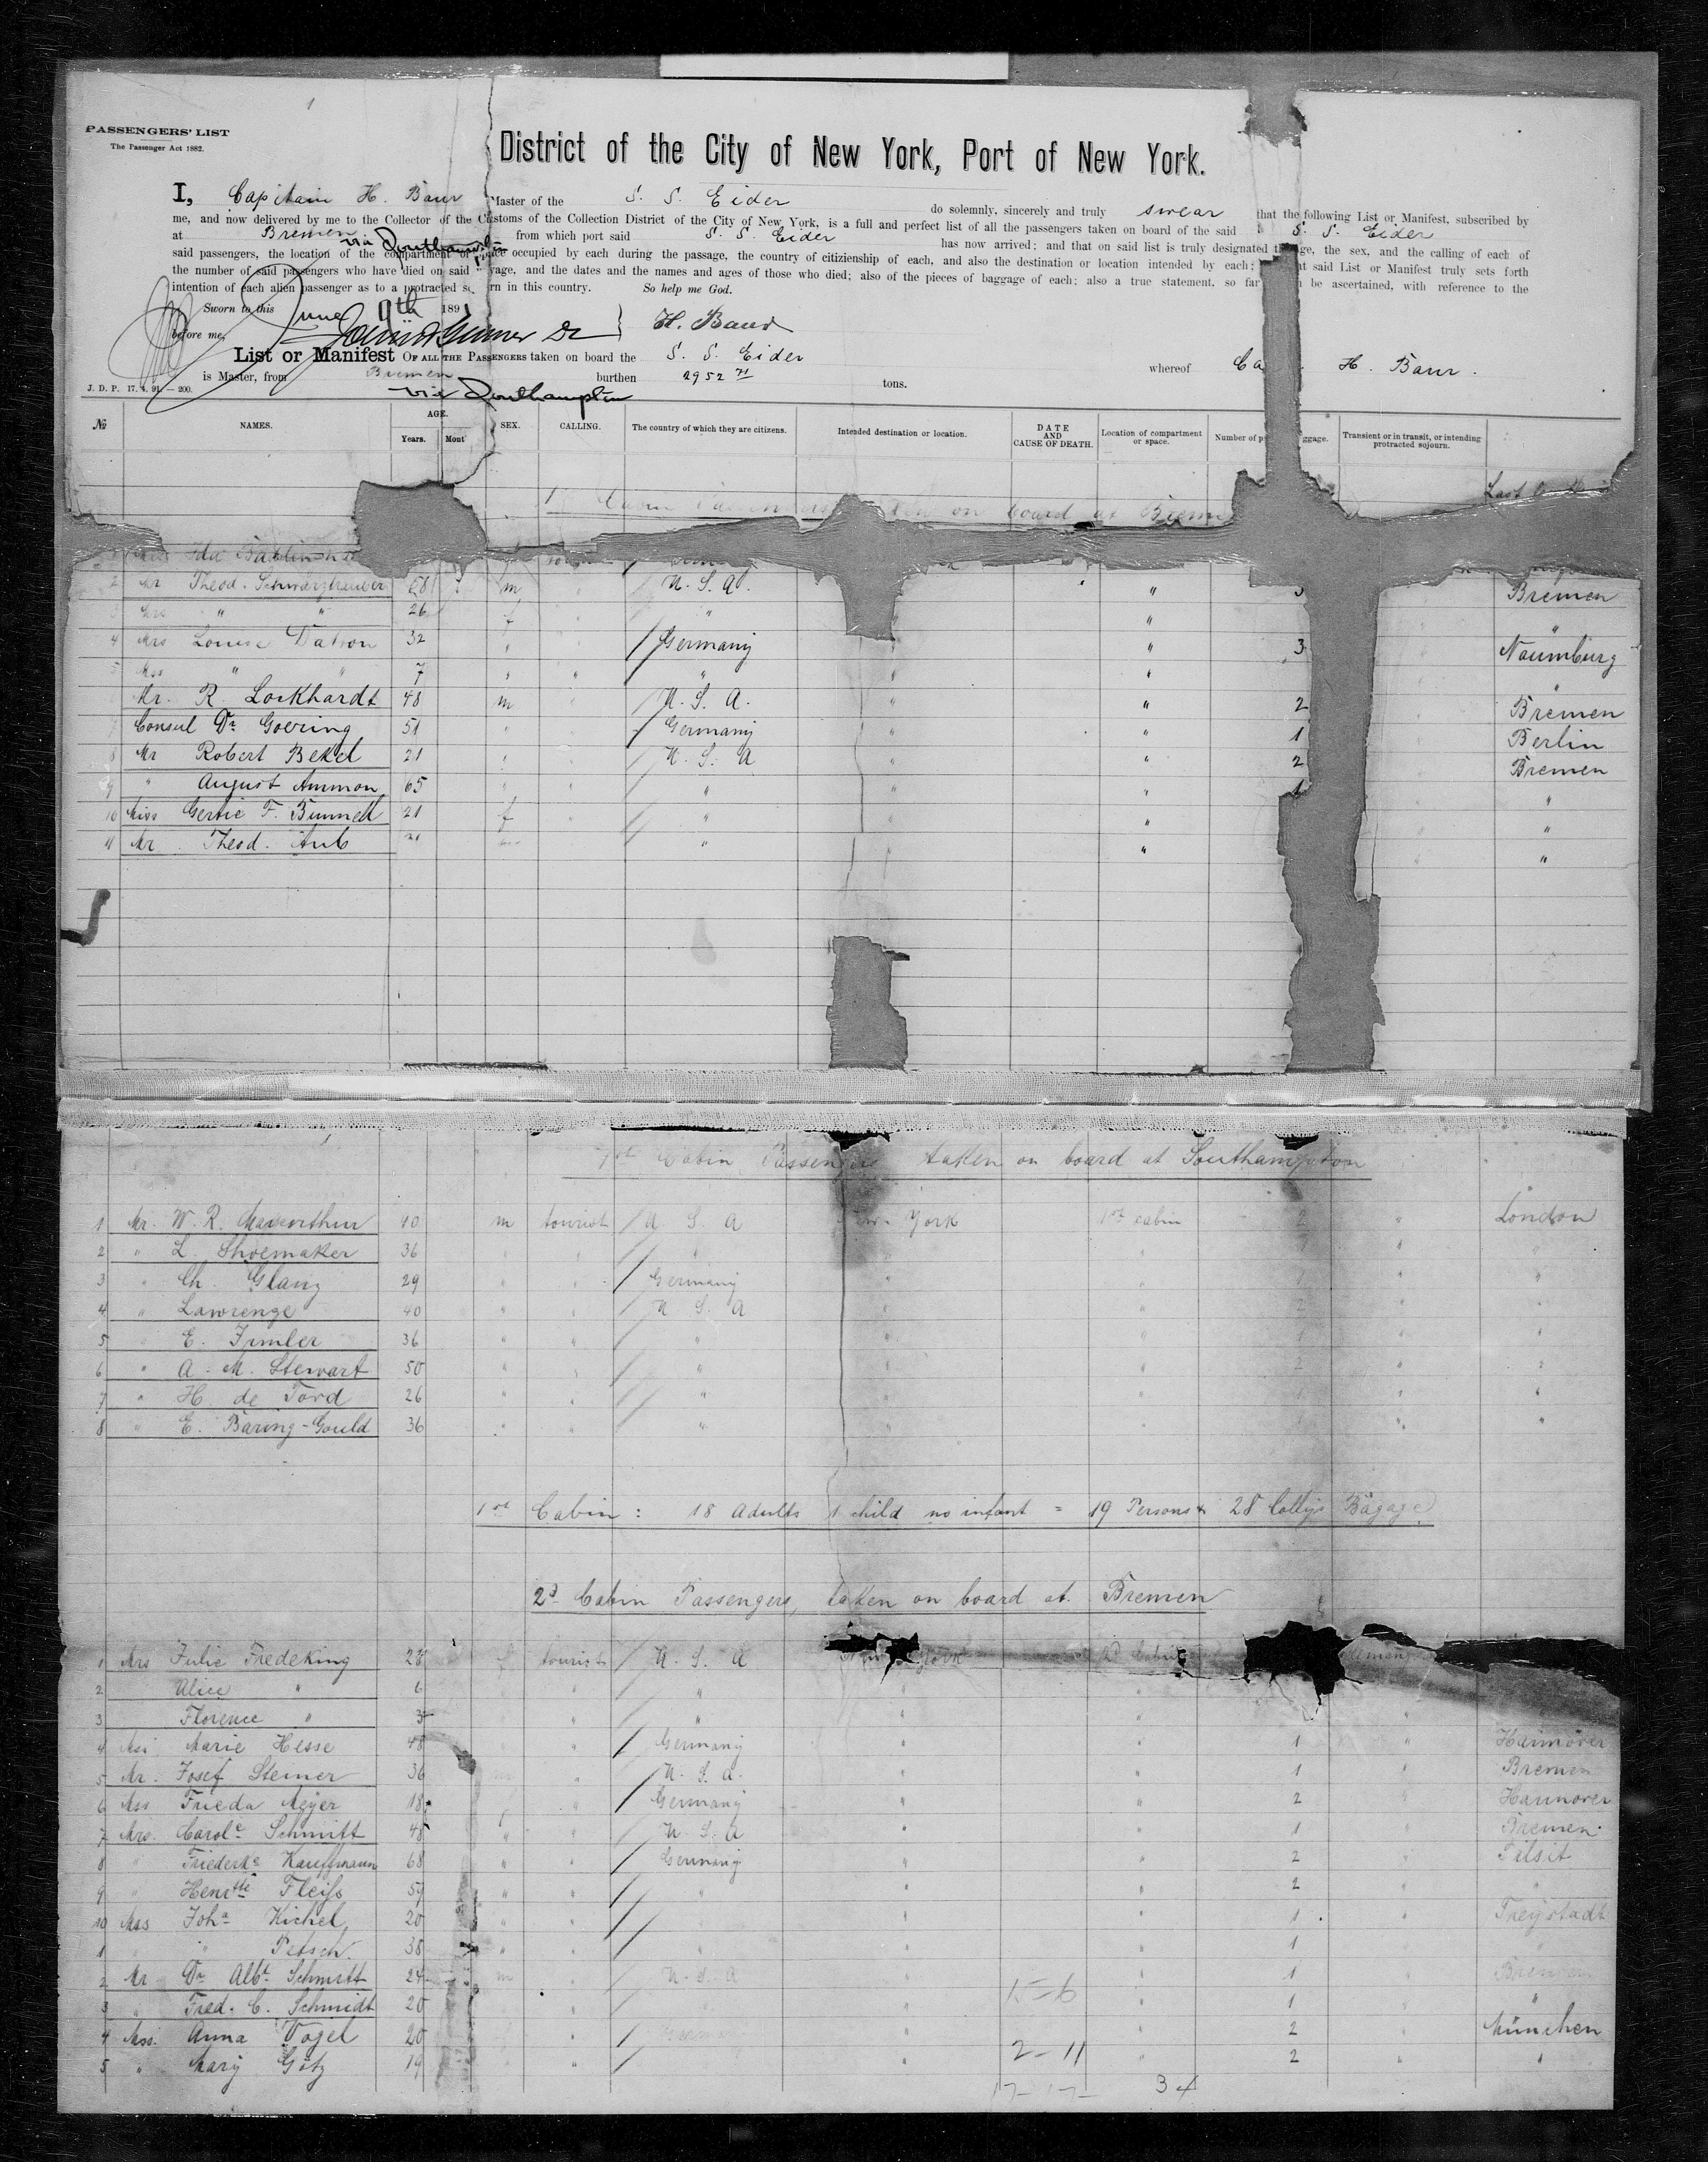 1
PASSENGERS' LIST
The Passenger Act 1882.
District of the City of New York, Port of New York.
I, Capitain H. Baur Master of the S. S. Eider do solemnly, sincerely and truly swear that the following List or Manifest, subscribed by
me, and now delivered by me to the Collector of the Customs of the Collection District of the City of New York, is a full and perfect list of all the passengers taken on board of the said S. S. Eider
at Bremen via Southampton from which port said S. S. Eider has now arrived; and that on said list is truly designated the age, the sex, and the calling of each of
said passengers, the location of the compartment or space occupied by each during the passage, the country of citizienship of each, and also the destination or location intended by each; that said List or Manifest truly sets forth
the number of said passengers who have died on said voyage, and the dates and the names and ages of those who died; also of the pieces of baggage of each; also a true statement, so far be ascertained, with reference to the
intention of each alien passenger as to a protracted sojourn in this country. So help me God.
Sworn to this June 11th 1891
before me, H. Baur
List or Manifest OF ALL THE PASSENGERS taken on board the S. S. Eider whereof H. Baur.
is Master, from Bremen burthen 2952 71 tons.
via Southampton
J. D. P. 17. 4. 91. — 200.
№ NAMES. AGE. Years. Mont SEX. CALLING. The country of which they are citizens. Intended destination or location. DATE AND CAUSE OF DEATH. Location of compartment or space. Number of p ggage. Transient or in transit, or intending protracted sojourn.
1 Cabin on board at Bremen Last
Ida
2 Mr Theod. m U. S. A. " 3 Bremen
3 Mrs " " 26 f " " "
4 Mrs Louise 32 " Germany " " 3 Naumburg
5 Mss " " 7 " " " " " "
Mr. R. Lockhardt 48 m U. S. A. " " 2 Bremen
7 Consul Dr Goering 51 " Germany " " 1 Berlin
8 Mr Robert Bekel 21 " U. S. A " " 2 Bremen
9 " August Ammon 65 " " " " "
10 Miss Gertie F. Bunnell 21 f " " "
11 Mr. Theod. Aub " " "
1st Cabin Passengers taken on board at Southampton
1 Mr. W. R. 40 m tourist U S A New York 1st cabin " London
2 " L. Shoemaker 36 " " " " " " "
3 " Ch. Glanz 29 " " Germany " " 1 " "
4 " Lawrenge 40 " " U S A " " 2 " "
5 " E. 36 " " " " " 1 " "
6 " A. M. Stewart 50 " " " " " " "
7 " H. de Ford 26 " " " " " 1 " "
8 " E. Baring-Gould 36 " " " " " 1 " "
1st Cabin : 18 Adults 1 child no infant = 19 Persons & 28 Collijs Bagage
2d Cabin Passengers, taken on board at Bremen
1 Mrs Julie Fredeking 28 f tourist U. S. A New York 2d Cabin
2 Alice " 6 " " "
3 Florence " 3 " " "
4 Mss Marie Hesse 48 " Germany " " 1 " Hannover
5 Mr. Josef Steiner 36 m " U. S. A. " " 1 " Bremen
6 Mss Frieda Meyer 18 f " Germany " " 2 " Hannover
7 Mrs. Carole Schmitt 48 " " U. S. A " " 1 " Bremen
8 " Friederke Kauffmann 68 " " Germany " " 2 " Tilsit
9 " Henrtte Fleifs 57 " " " " " 2 " "
10 Mss Joha Kichel, 20 " " " " 1 " Freystadt
1 " " Petsch. 38 " " " " " 1 "
2 Mr Dr Albt Schmitt 24 m " U. S. A " " 1 " Bremen
3 " Fred. C. Schmidt 20 " " " 1 " "
15-6
4 Mss. Anna Vogel 20 " " " 2 " München
5 " Mary Götz 19 " " " 2 " "
2-11
17-17- 34